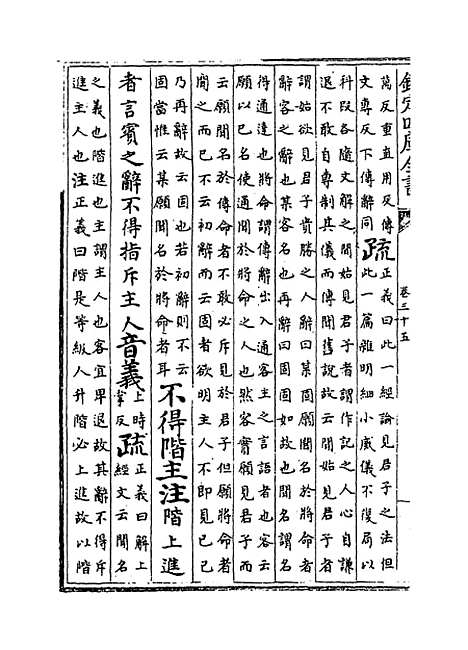 欽定四庫全書
卷三十五
萬反重直用反傳
文專反下傳辭同
疏
正義曰此一經論見君子之法但
此一篇雜明細小威儀不復局以
科段各隨文解之聞始見君子者謂作記之人心自謙
退不敢自專制其儀而傳聞舊說故云聞始見君子者
謂始欲見君子貴勝之人辭曰某固願聞名於將命者
辭客之辭也某客名也再辭曰固固如故也聞名謂名
得通達也將命謂傳辭出入通客主之言語者也客云
願以己名使通聞於將命之人也然客實願見君子而
云願聞名於傳命者不敢必斥見於君子但願將命者
聞之而已不云初辭而云固者欲明主人不即見己已
乃再辭故云固也若初辭則不云
固當惟云某願聞名於將命者耳
不得階主注階上進
者言賓之辭不得指斥主人音義
上時
掌反
疏
正義曰解上
經文云聞名
之義也階進也主謂主人也客宜卑退故其辭不得斥
進主人也注正義曰階是等級人升階必上進故以階